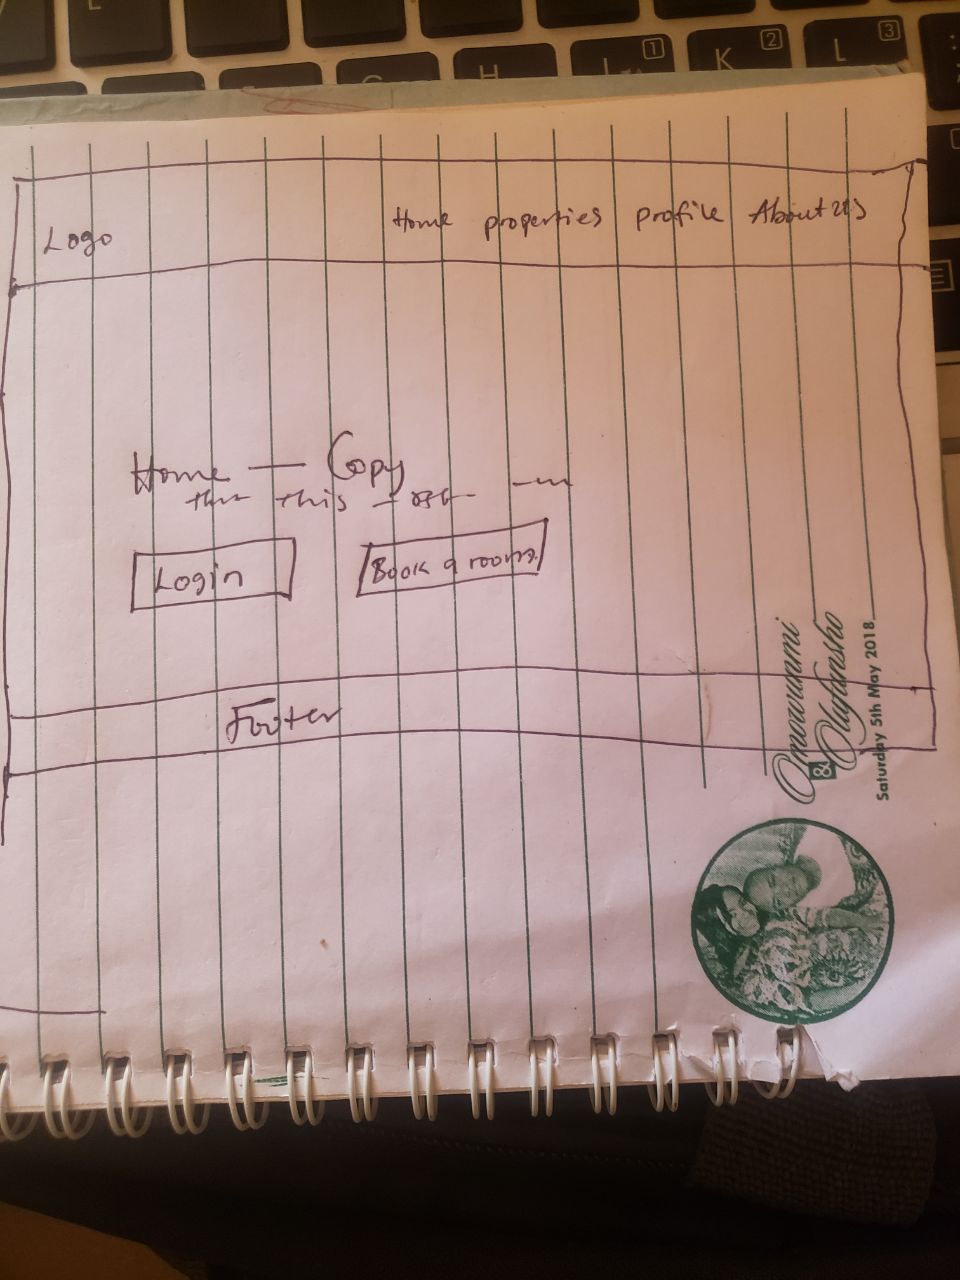 L
G
H
J
1
K
2
L
3
Logo
Home properties profile About us
Home — Copy
this
Login
Book a room
Footer
Omowunmi
& Olufunsho
Saturday 5th May 2018